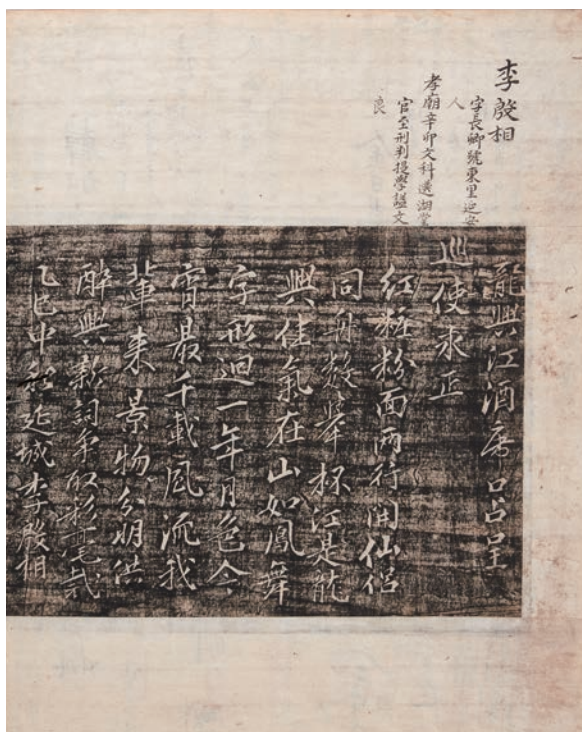 李殷相
字長卿號東里延安
人
孝廟辛卯文科選湖堂
官至刑判提學諡文
良
龍興江酒席口占呈
巡使求正
紅粧粉面兩行開仙侶
同舟數擧杯江是龍
興佳氣在山如鳳舞
字形迴一年月色今
宵最千載風流我
輩來景物分明供
醉興新詞爭取彩毫裁
乙巳中秋延城李殷相